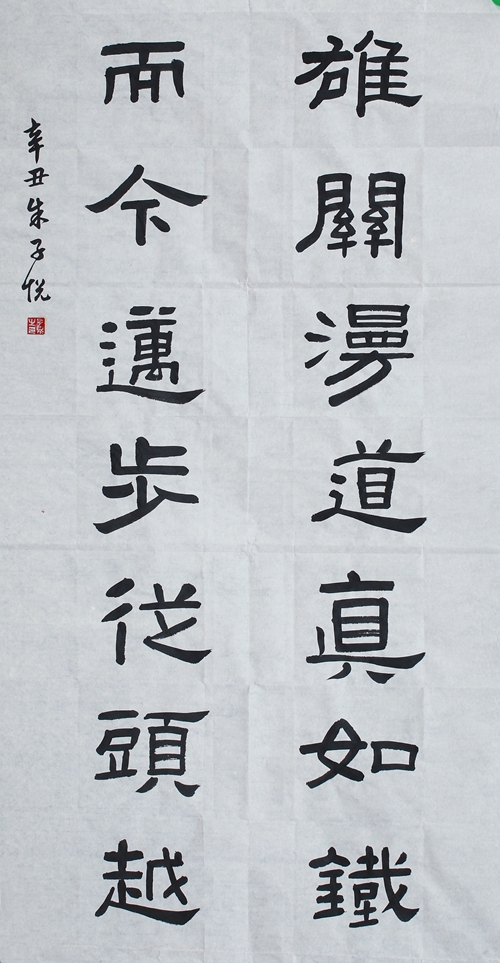 雄關漫道真如鐵
而今邁步從頭越
辛丑朱子悦